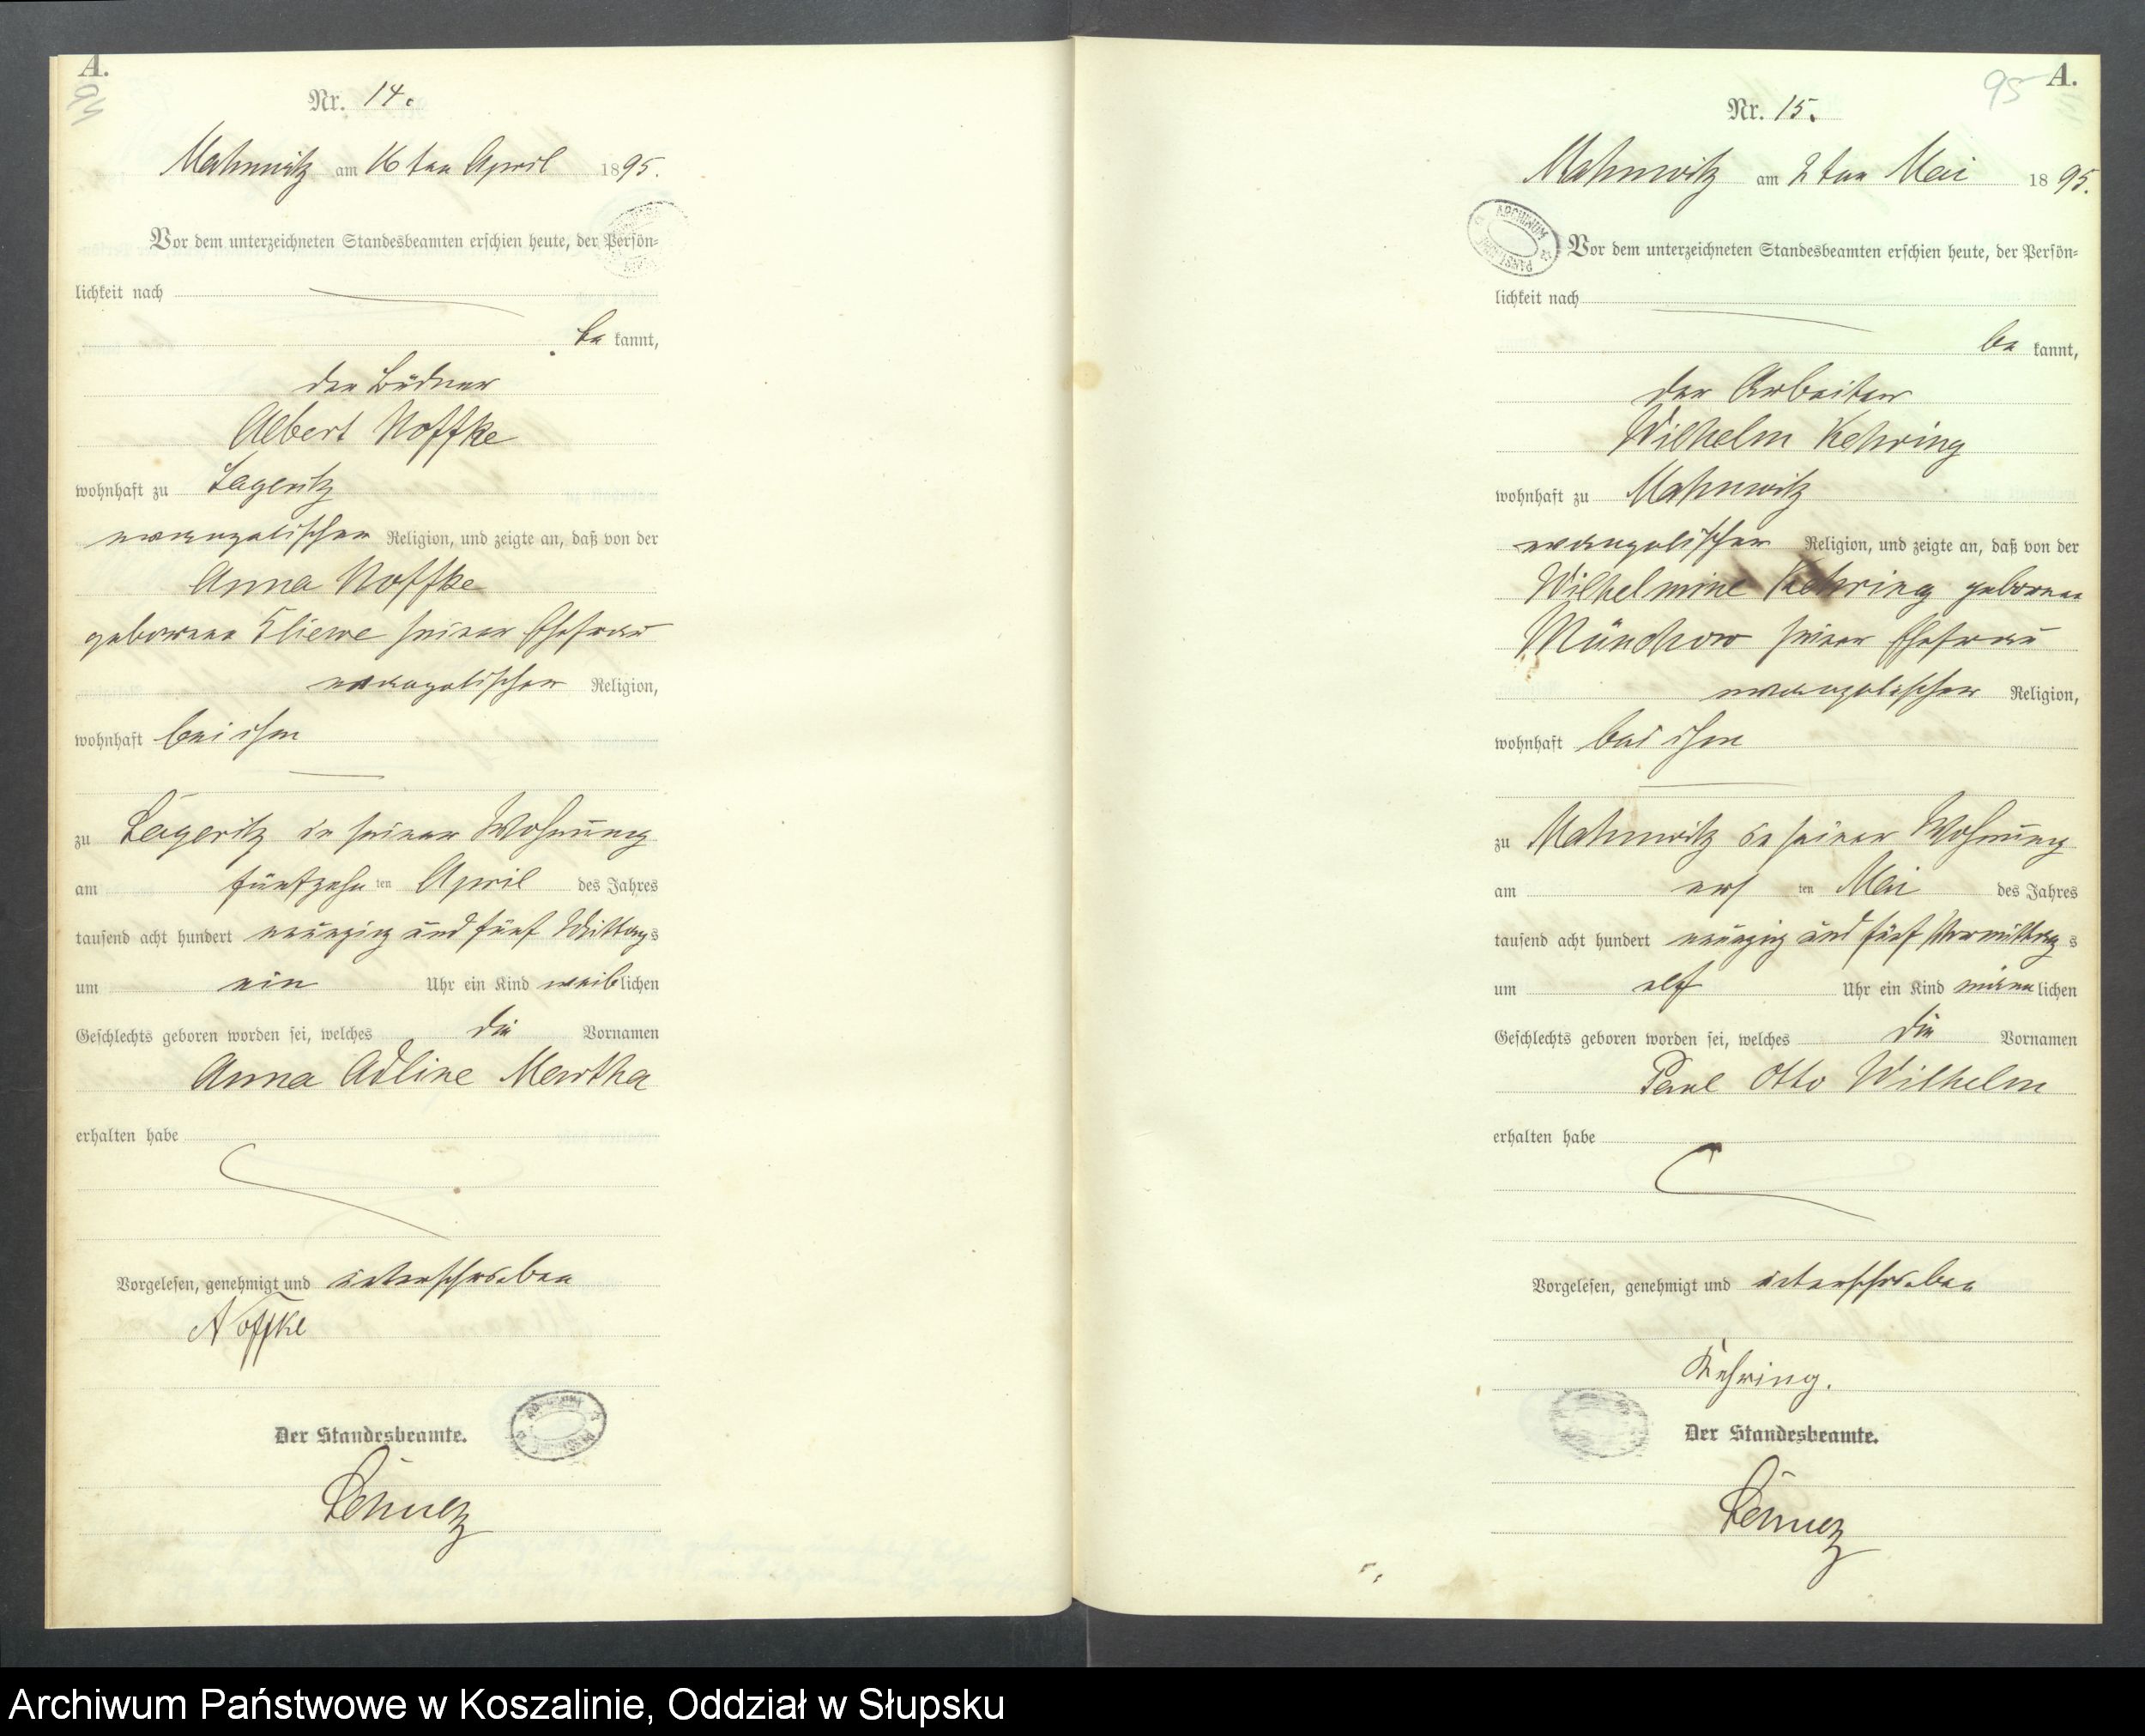 A.
94
Nr. 14.
Mahnwitz am 16ten April 1895.
Vor dem unterzeichneten Standesbeamten erschien heute, der Persön-
lichkeit nach
be kannt,
der Büdner
Albert Noffke
wohnhaft zu Zageritz
evangelischer Religion, und zeigte an, daß von der
Anna Noffke
geborene Kliewe seiner Ehefrau
evangelischer Religion,
wohnhaft bei ihm
zu Zageritz in seiner Wohnung
am fünfzehn ten April des Jahres
tausend acht hundert neunzig und fünf Mittags
um ein Uhr ein Kind weiblichen
Geschlechts geboren worden sei, welches die Vornamen
Anna Adline Martha
erhalten habe
Vorgelesen, genehmigt und unterschrieben
Noffke
Der Standesbeamte.
A.
95
Nr. 15.
Mahnwitz am 2ten Mai 1895.
ARCHIWUM
Vor dem unterzeichneten Standesbeamten erschien heute, der Persön-
lichkeit nach
be kannt,
der Arbeiter
Wilhelm Kehring
wohnhaft zu Mahnwitz
evangelischer Religion, und zeigte an, daß von der
Wilhelmine Kehring geborene
Münchow seiner Ehefrau
evangelischer Religion,
wohnhaft bei ihm
zu Mahnwitz in seiner Wohnung
am ers ten Mai des Jahres
tausend acht hundert neunzig und fünf Vormittags
um elf Uhr ein Kind männlichen
Geschlechts geboren worden sei, welches die Vornamen
Paul Otto Wilhelm
erhalten habe
Vorgelesen, genehmigt und unterschrieben
Kehring.
Der Standesbeamte.
Archiwum Państwowe w Koszalinie, Oddział w Słupsku